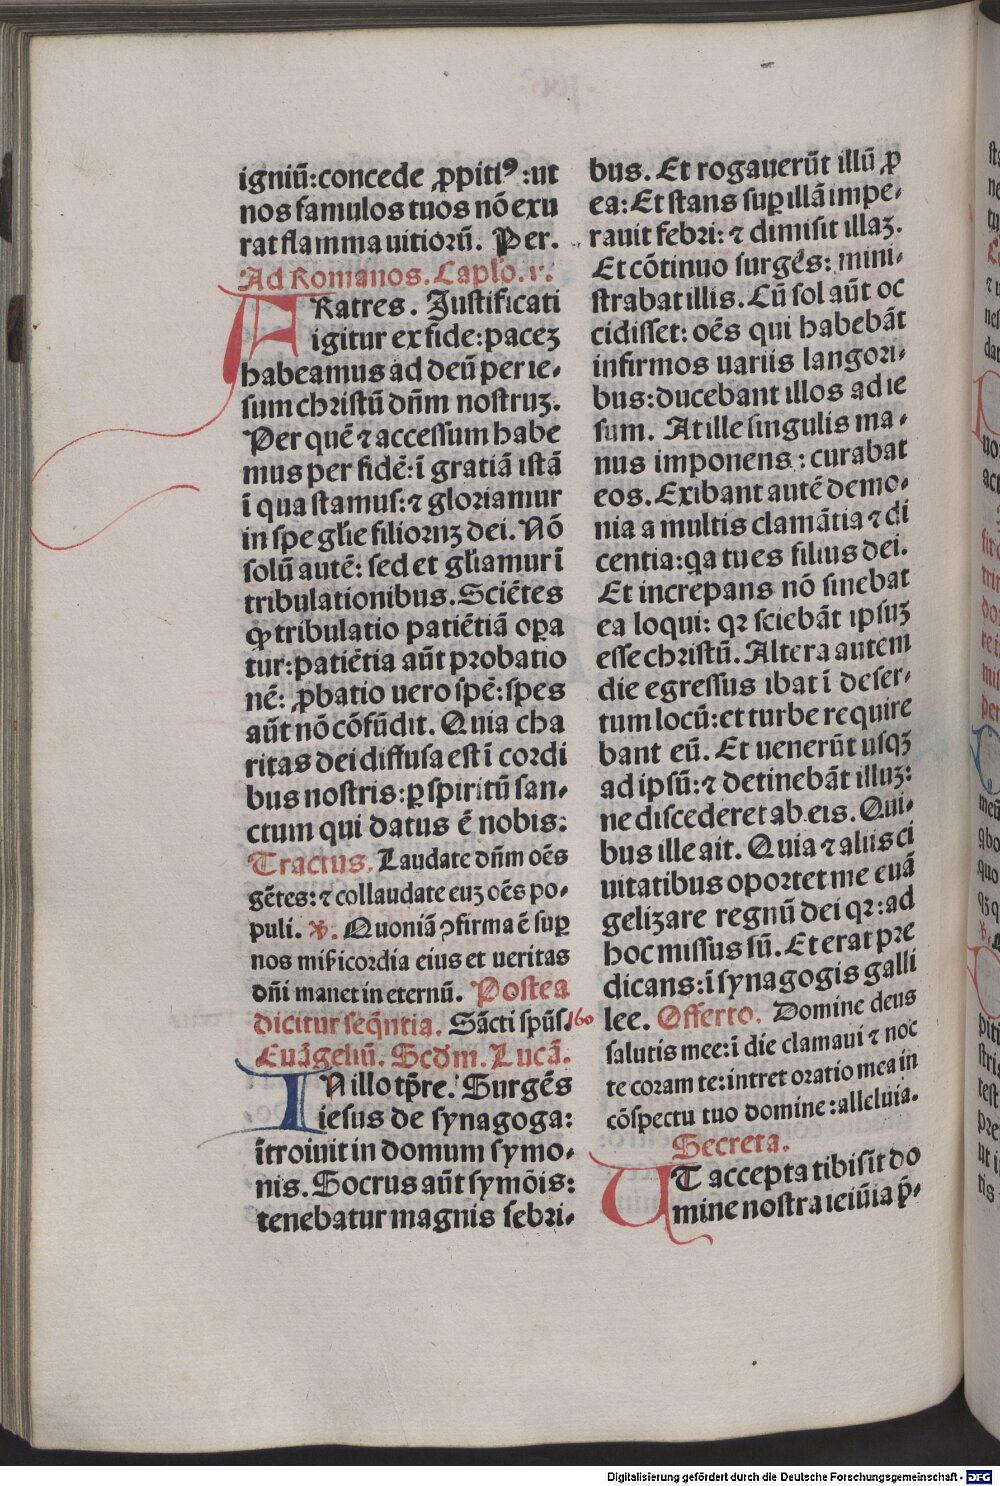 igniū:concede ꝓpitiꝰ:ut
nos famulos tuos nō exu
rat flamma uitiorū. Per.
Ad Romanos. Caplo. v.
FRatres. Justificati
igitur ex fide:pacez
habeamus ad deū per ie-
sum christū dn̄m nostruz.
Per quē ⁊ accessum habe
mus per fidē:ī gratiā istā
ī qua stamus:⁊ gloriamur
in spe gl̄ie filiornz dei. Nō
solū autē: sed et gl̄iamur ī
tribulationibus. Sciētes
ꝙ tribulatio patiētiā oꝑa
tur:patiētia aūt probatio
nē: ꝓbatio uero spē:spes
aūt nō cōfūdit. Quia cha
ritas dei diffusa est ī cordi
bus nostris:ꝑ spiritū san-
ctum qui datus ē nobis:
Tractus. Laudate dn̄m oēs
gētes:⁊ collaudate euz oēs po-
puli. ℣. Quoniā ꝯfirma ē suꝑ
nos mīicordia eius et ueritas
dn̄i manet in eternū. Postea
dicitur seq̄ntia. Sācti spūs. 160
Euāgeliū. Scdm. Lucā.
IN illo tp̄re. Surgēs
iesus de synagoga:
ītroiuit in domum symo-
nis. Socrus aūt symōis:
tenebatur magnis febri-
bus. Et rogauerūt illū ꝓ
ea: Et stans suꝑ illā impe-
rauit febri: ⁊ dimisit illaz.
Et cōtinuo surgēs: mini-
strabat illis. Cū sol aūt oc
cidisset: oēs qui habebāt
infirmos uariis langori-
bus:ducebant illos ad ie
sum. At ille singulis ma-
nus imponens: curabat
eos. Exibant autē demo-
nia a multis clamātia ⁊ di
centia:qa tu es filius dei.
Et increpans nō sinebat
ea loqui: qꝛ sciebāt ipsuz
esse christū. Altera autem
die egressus ibat ī deser-
tum locū:et turbe require
bant eū. Et uenerūt usqꝫ
ad ipsū:⁊ detinebāt illuz:
ne discederet ab eis. Qui-
bus ille ait. Quia ⁊ aliis ci
uitatibus oportet me euā
gelizare regnū dei qꝛ:ad
hoc missus sū. Et erat pre
dicans:ī synagogis galli
lee. Offerto. Domine deus
salutis mee:ī die clamaui ⁊ noc
te coram te:intret oratio mea in
cōspectu tuo domine:alleluia.
Secreta.
UT accepta tibi sīt do
mine nostra ieiūia p̄-
Digitalisierung gefördert durch die Deutsche Forschungsgemeinschaft - DFG